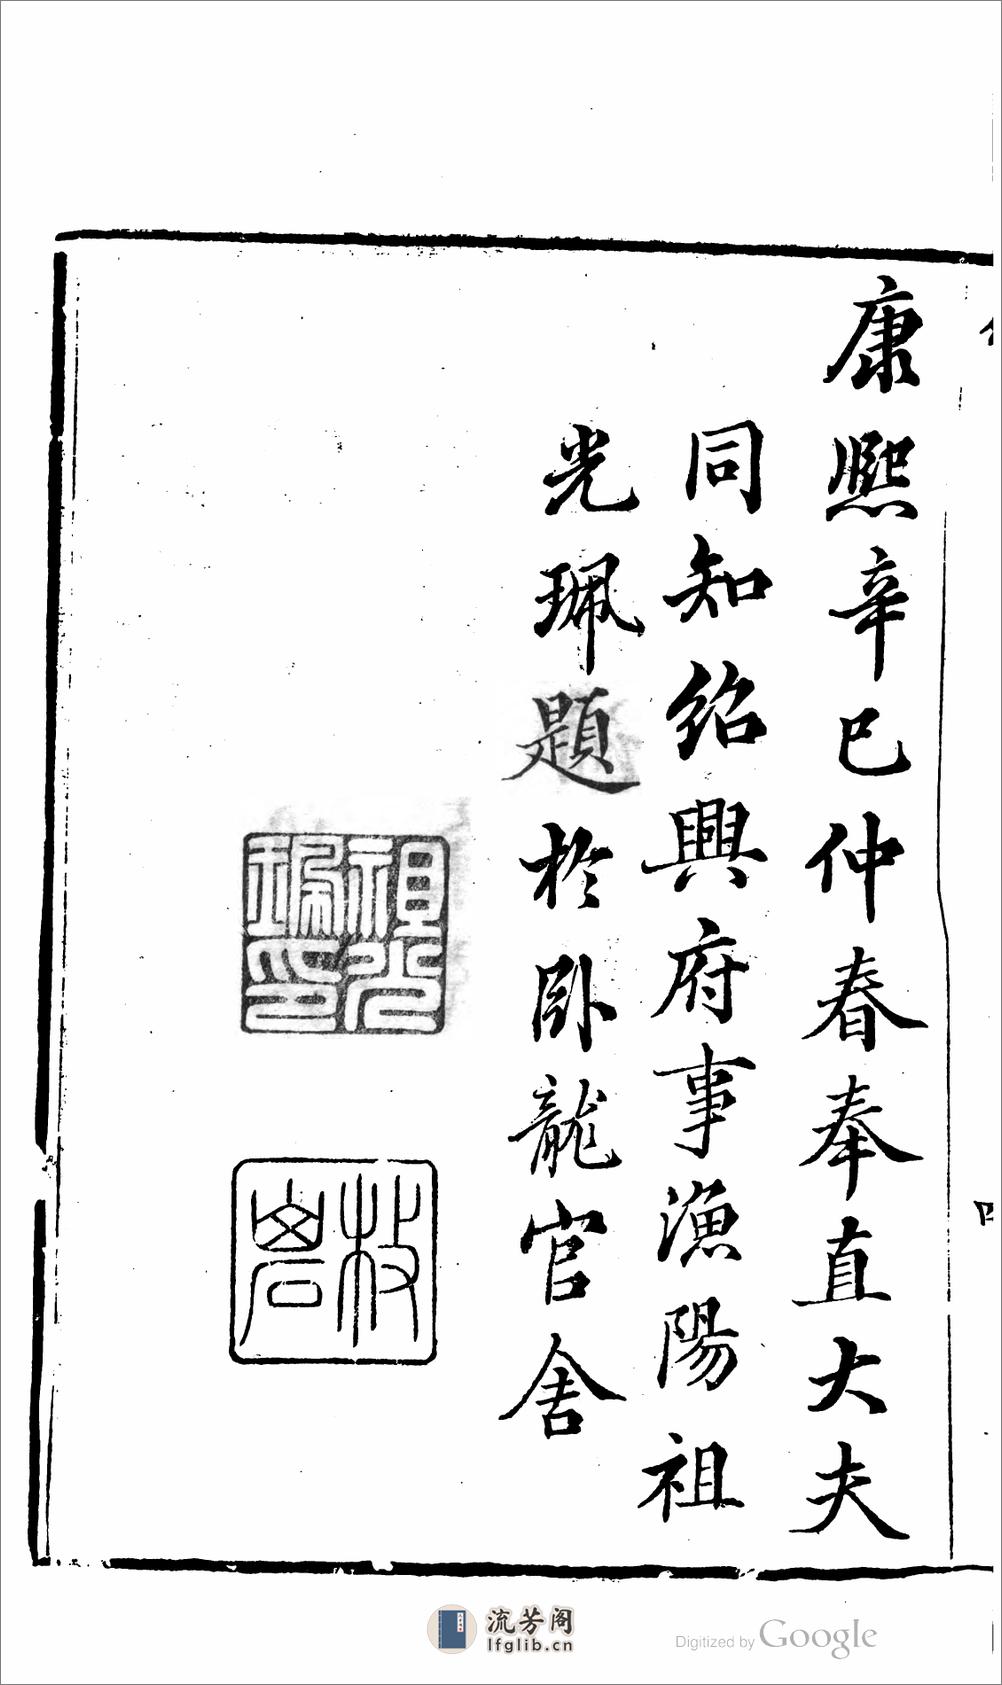 康熙辛巳仲春奉直大夫
同知紹興府事漁陽祖
光珮題於卧龍官舍
祖光珮印
流芳阁
lfglib.cn
Digitized by Google